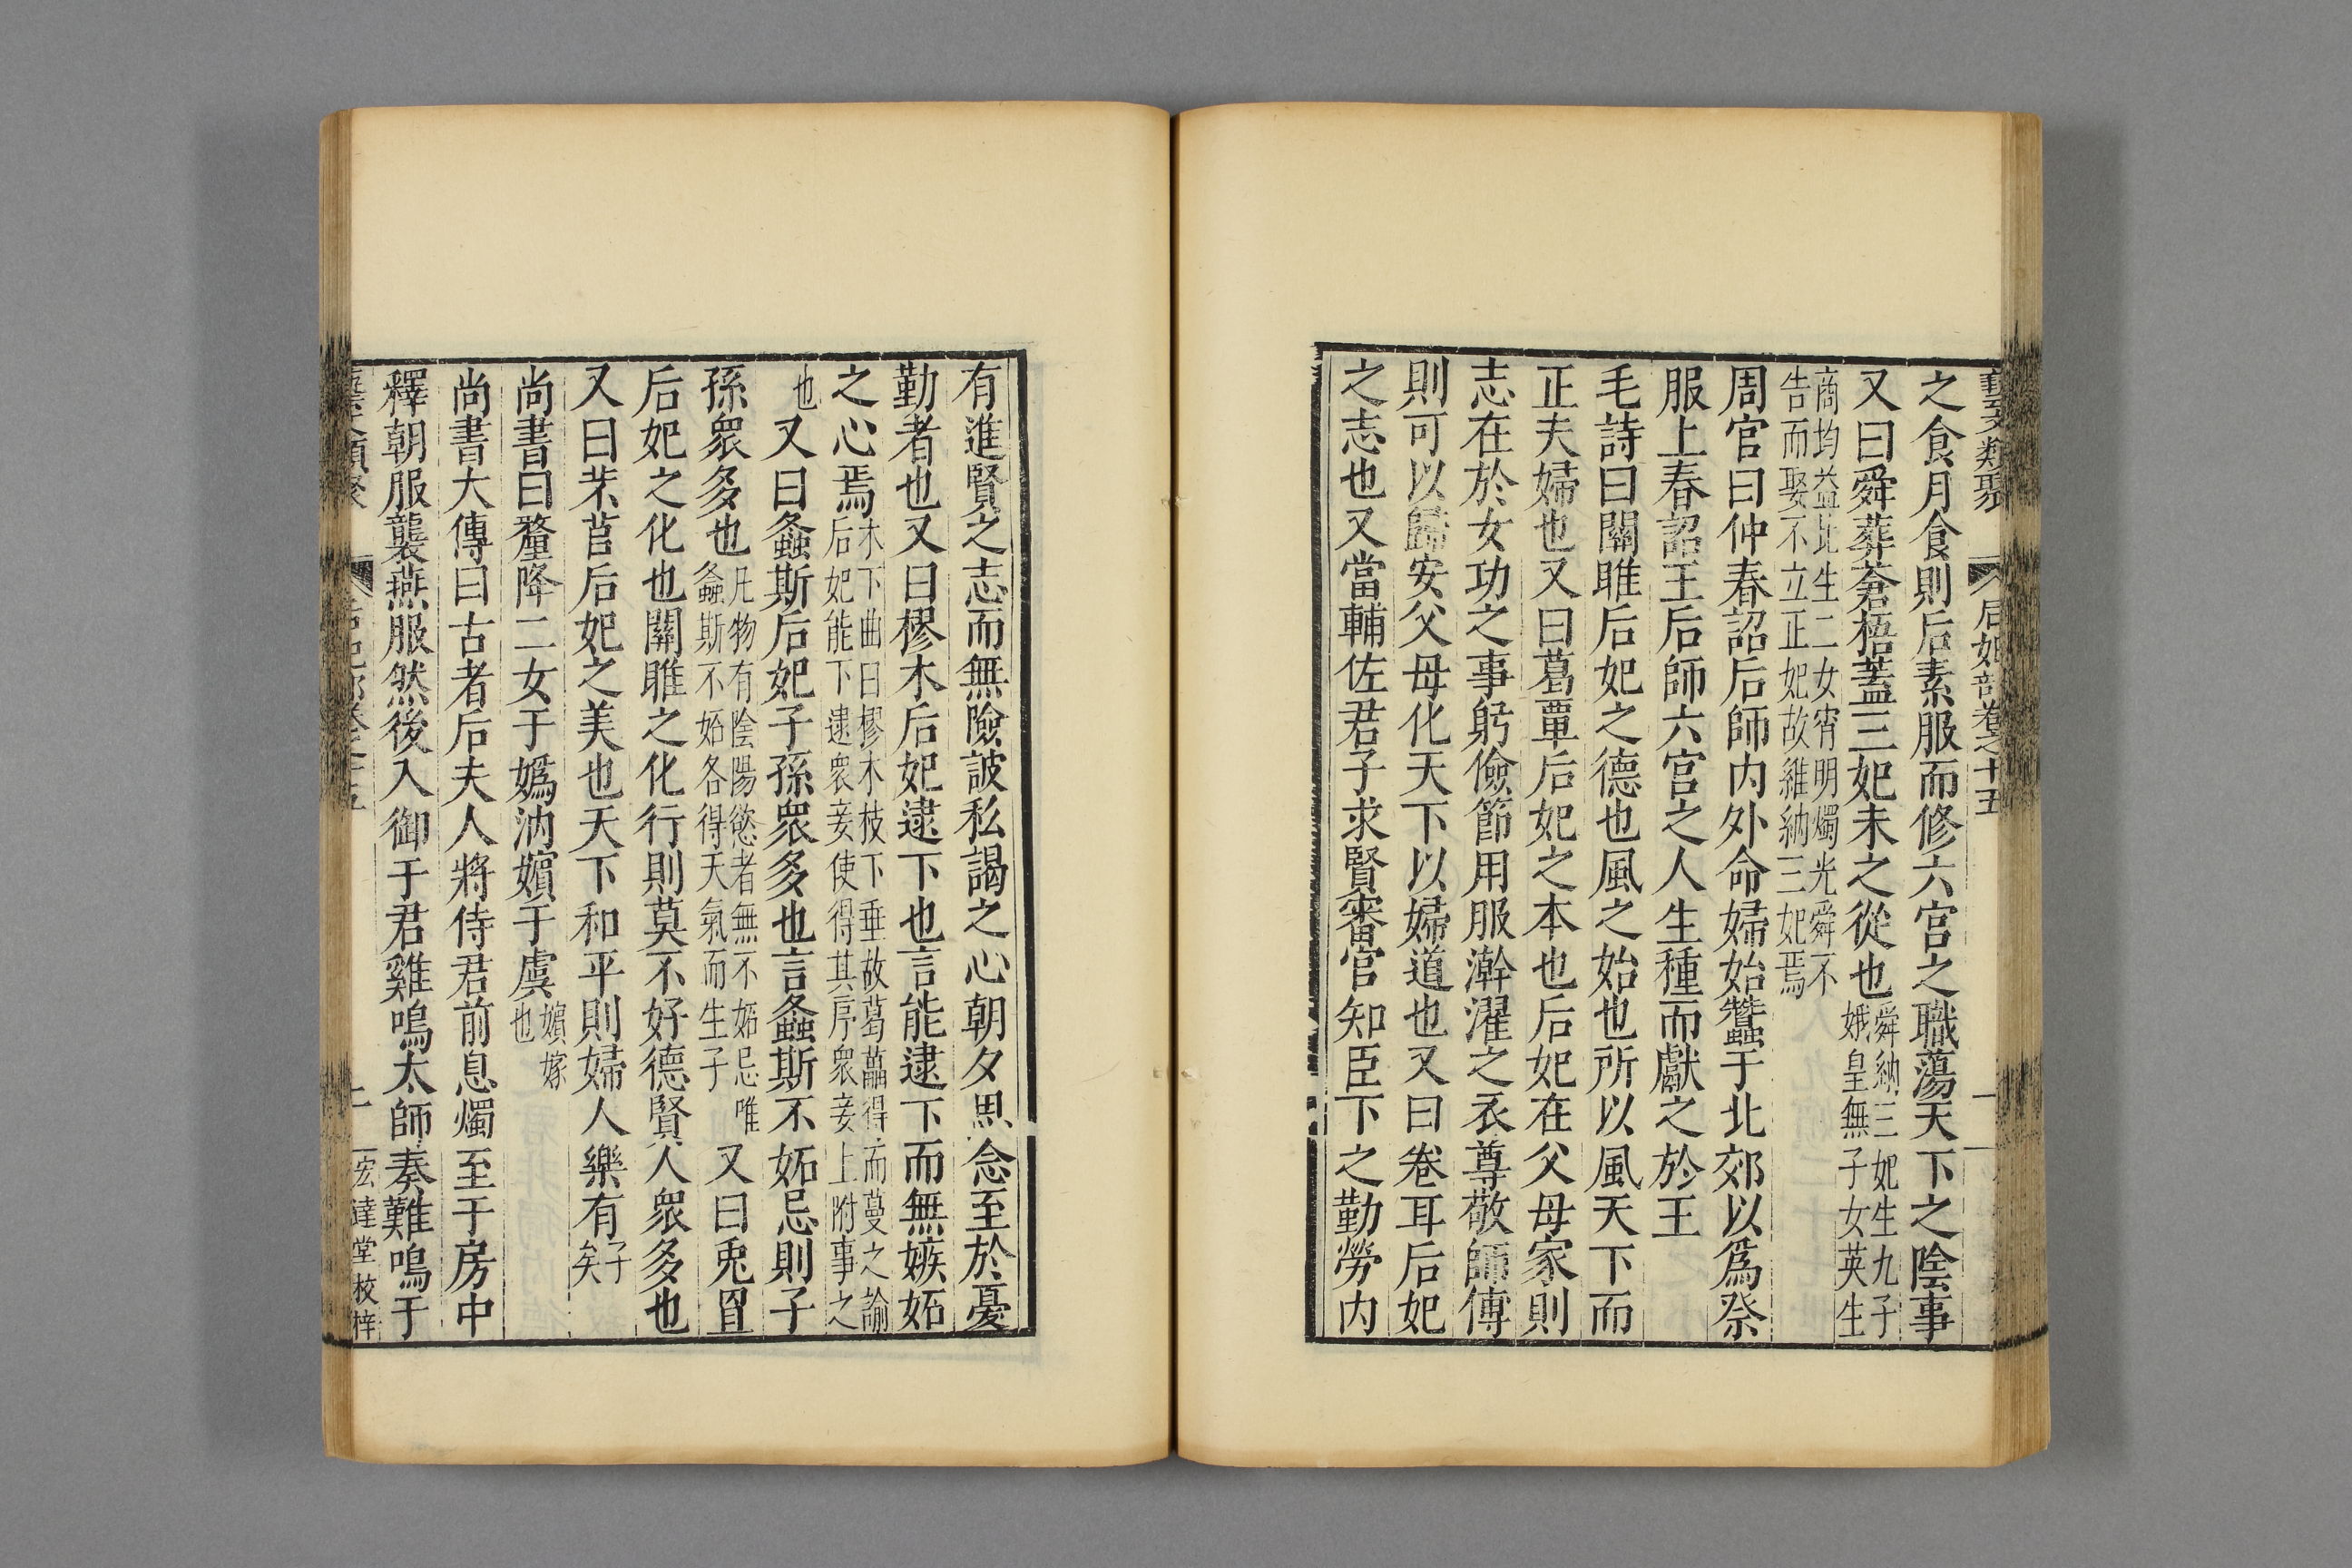 藝文類聚 后妃部卷之十五
之食月食則后素服而修六宮之職蕩天下之陰事
又曰舜葬蒼梧蓋三妃未之從也舜納三妃生九子
娥皇無子女英生
商均益比生二女宵明燭光舜不
告而娶不立正妃故維納三妃焉
周官曰仲春詔后師內外命婦始蠶于北郊以爲祭
服上春詔王后師六宮之人生種而獻之於王
毛詩曰關雎后妃之德也風之始也所以風天下而
正夫婦也又曰葛覃后妃之本也后妃在父母家則
志在於女功之事躬儉節用服澣濯之衣尊敬師傅
則可以歸安父母化天下以婦道也又曰卷耳后妃
之志也又當輔佐君子求賢審官知臣下之勤勞內
有進賢之志而無險詖私謁之心朝夕思念至於憂
勤者也又曰樛木后妃逮下也言能逮下而無嫉妬
之心焉木下曲曰樛木枝下垂故葛藟得而蔓之諭
后妃能下逮衆妾使得其序衆妾上附事之
也又曰螽斯后妃子孫衆多也言螽斯不妬忌則子
孫衆多也凡物有陰陽慾者無不妬忌唯
螽斯不妬各得天氣而生子
又曰兎罝
后妃之化也關雎之化行則莫不好德賢人衆多也
又曰芣苢后妃之美也天下和平則婦人樂有子
矣
尚書曰釐降二女于嬀汭嬪于虞嬪嫁
也
尚書大傳曰古者后夫人將侍君前息燭至于房中
釋朝服襲燕服然後入御于君雞鳴太師奏難鳴于
宏達堂校梓